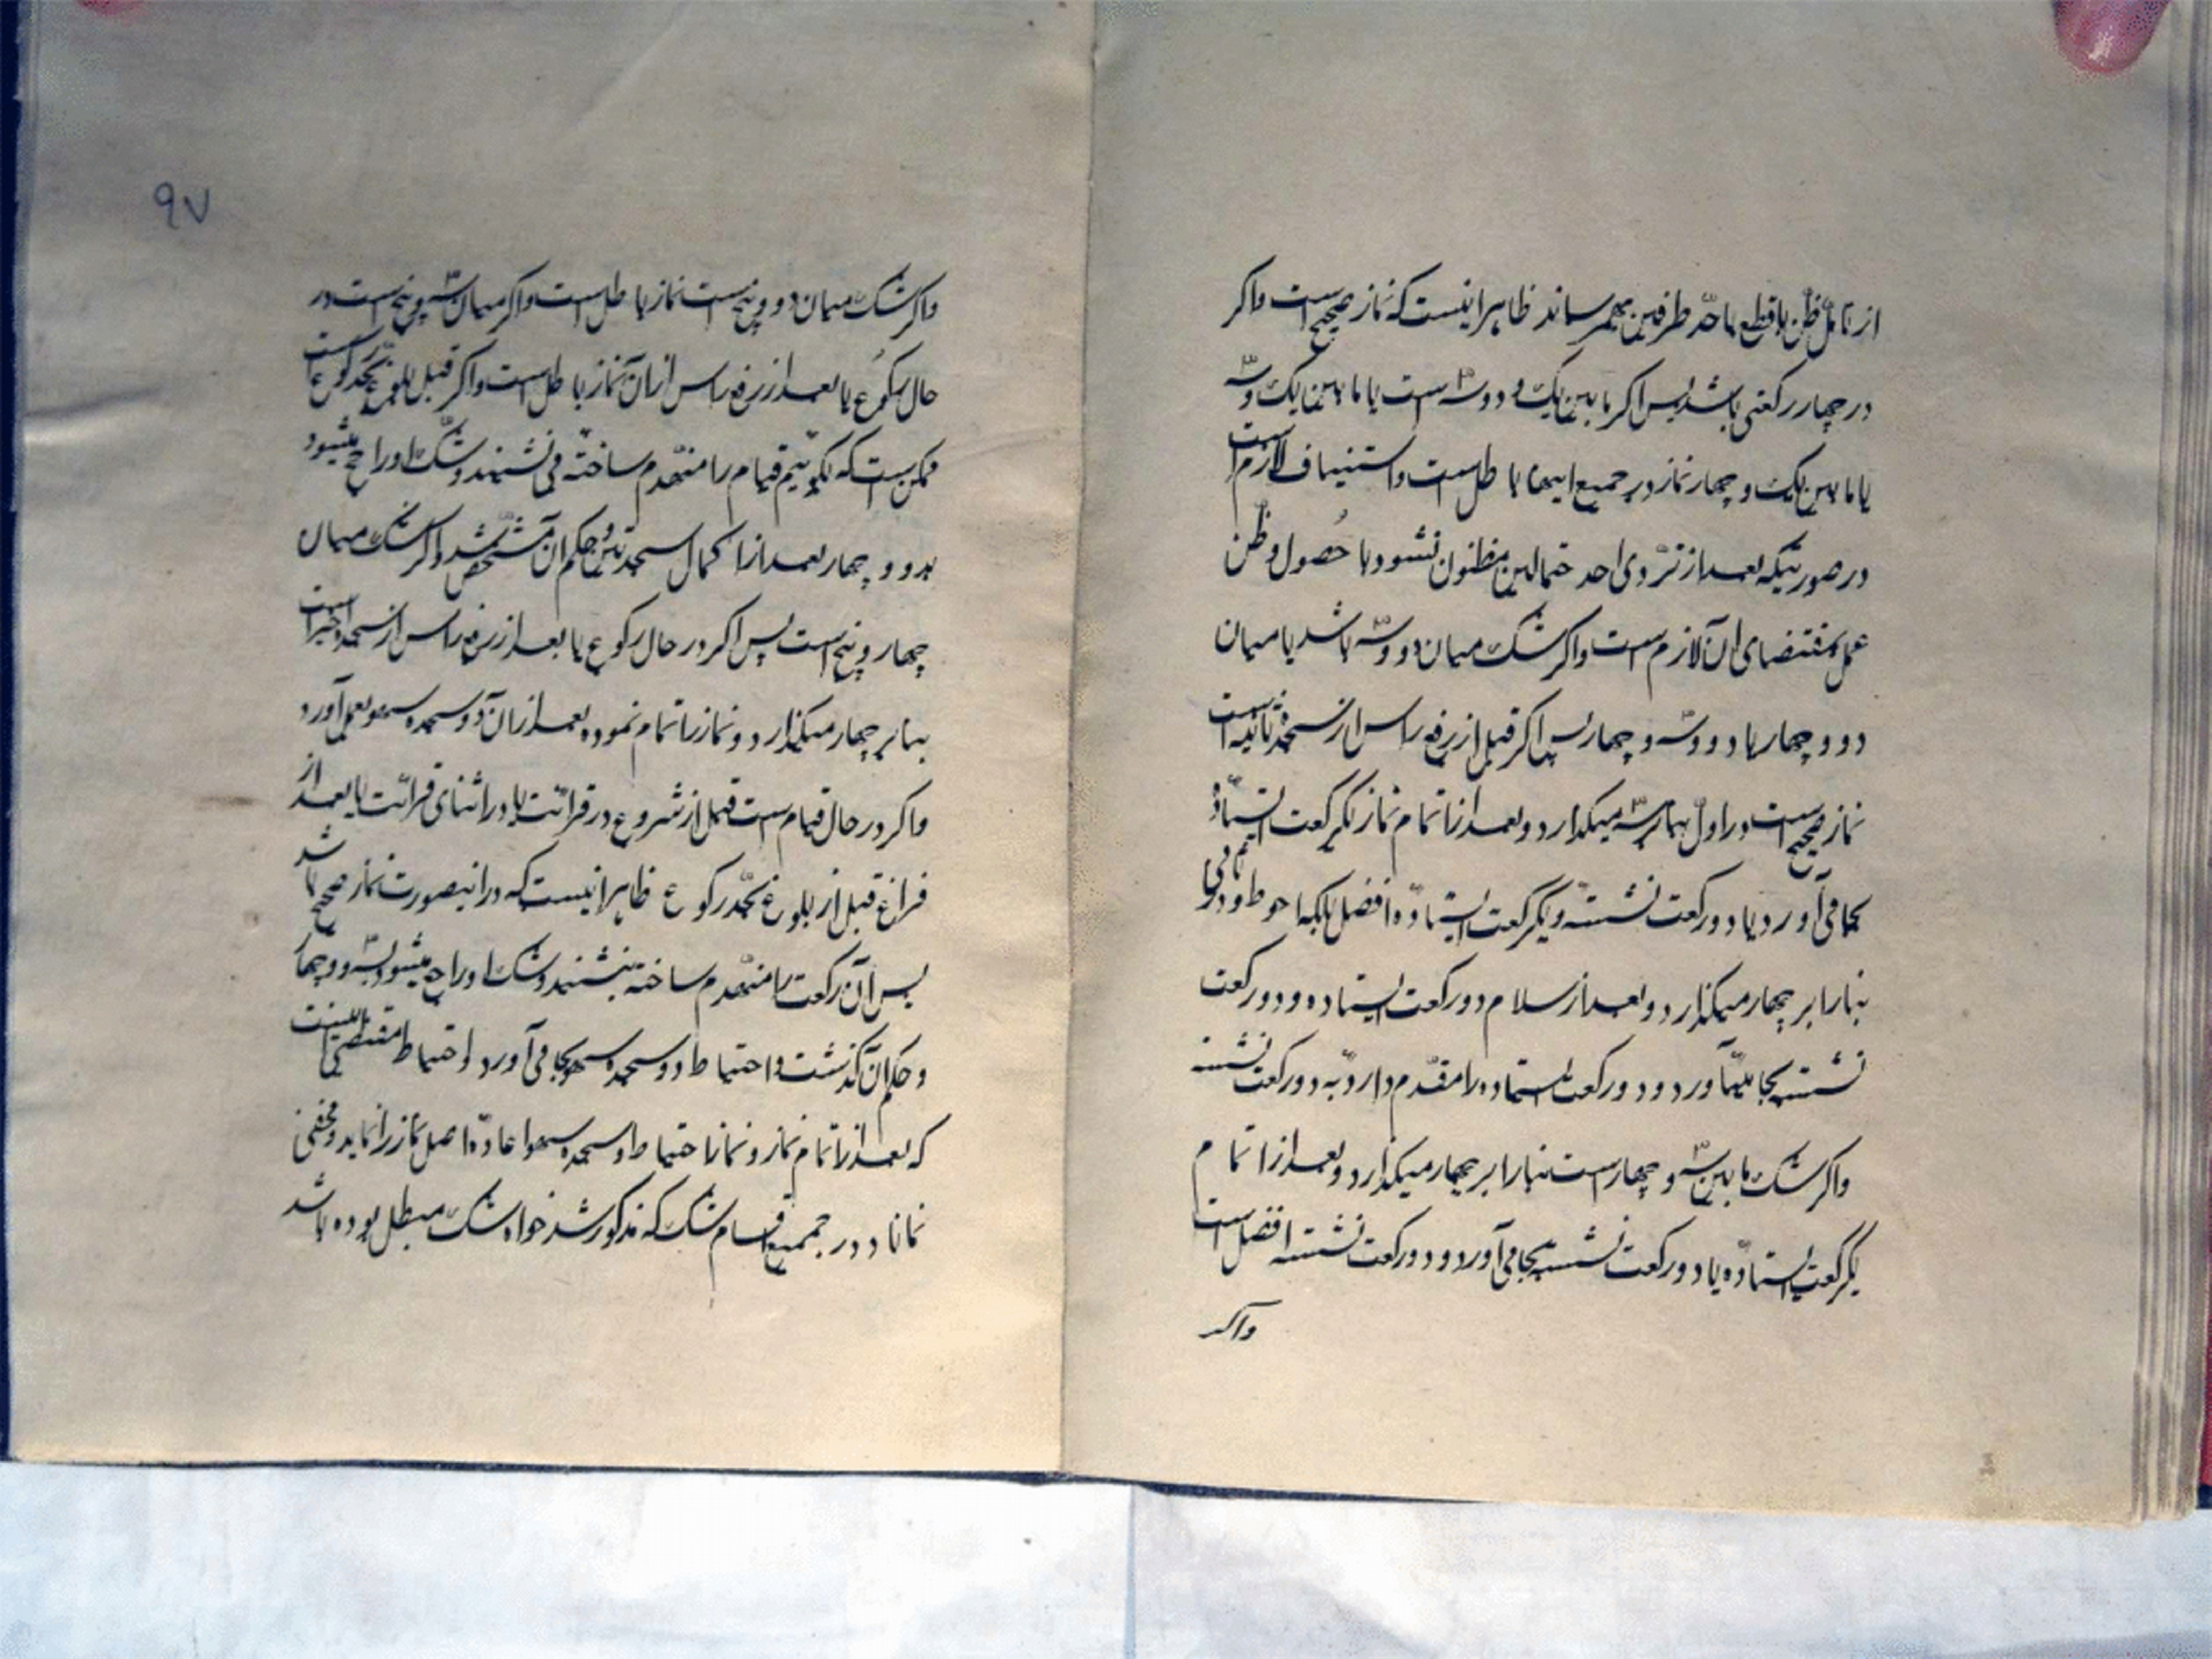 از تأمل ظن یا قطع باحد طرفین بهمرساند ظاهر اینست که نماز صحیح است واکر
در چهار رکعتی باشد پس اکر ما بین یک و دو وسه است یا ما بین یک وسه
یا ما بین یک و چهار نماز در جمیع اینها باطل است واستیناف لازم است
در صورتیکه بعد از تروی احد احتمالین مظنون نشود با حصول وظن
عمل بمقتضای ان لازم است واکر شک میان دو وسه باشد یا میان
دو و چهار یا دو وسه و چهار پس اکر قبل از رفع راس از سجده ثانیه است
نماز صحیح است در اول بنا بر سه میکذارد وبعد از اتمام نماز یکرکعت ایستاده
بجا می آورد یا دو رکعت نشسته ویکرکعت ایستاده افضل بلکه احوط ودر ثانی
بنا را بر چهار میکذارد وبعد از سلام دو رکعت ایستاده ودو رکعت
نشسته بجا میآورد ودو رکعت ایستاده را مقدم دارد به دو رکعت نشسته
واکر شک ما بین سه و چهار است بنا را بر چهار میکذارد وبعد از اتمام
یکرکعت ایستاده یا دو رکعت نشسته بجا می آورد ودو رکعت نشسته افضل است
واکر
۹۷
واکر شک میان دو وپنج است نماز باطل است واکر میان سه وپنج است در
حال رکوع یا بعد از رفع راس از ان نماز باطل است واکر قبل بلوغ بحد رکوع است
ممکن است که بکوئیم قیام را منهدم ساخته می نشیند وشک او راجع میشود
بدو و چهار بعد از اکمال سجدتین وحکم ان مشخص شد واکر شک میان
چهار وپنج است پس اکر در حال رکوع یا بعد از رفع راس از سجده اخیر است
بنا بر چهار میکذارد ونماز را تمام نموده بعد از ان دو سجده سهو بعمل آورد
واکر در حال قیام است قبل از شروع در قرائت یا در اثنای قرائت یا بعد از
فراغ قبل از بلوغ بحد رکوع ظاهر اینست که در اینصورت نماز صحیح باشد
پس آن رکعت را منهدم ساخته بنشیند وشک او راجع میشود بسه وچهار
وحکم آن کذشت واحتیاطا دو سجده سهو بجا می آورد واحتیاط مقتضی اینست
که بعد از اتمام نماز ونماز احتیاط وسجده سهو اعاده اصل نماز را نماید ومخفی
نماناد در جمیع اقسام شک که مذکور شد خواه شک مبطل بوده باشد